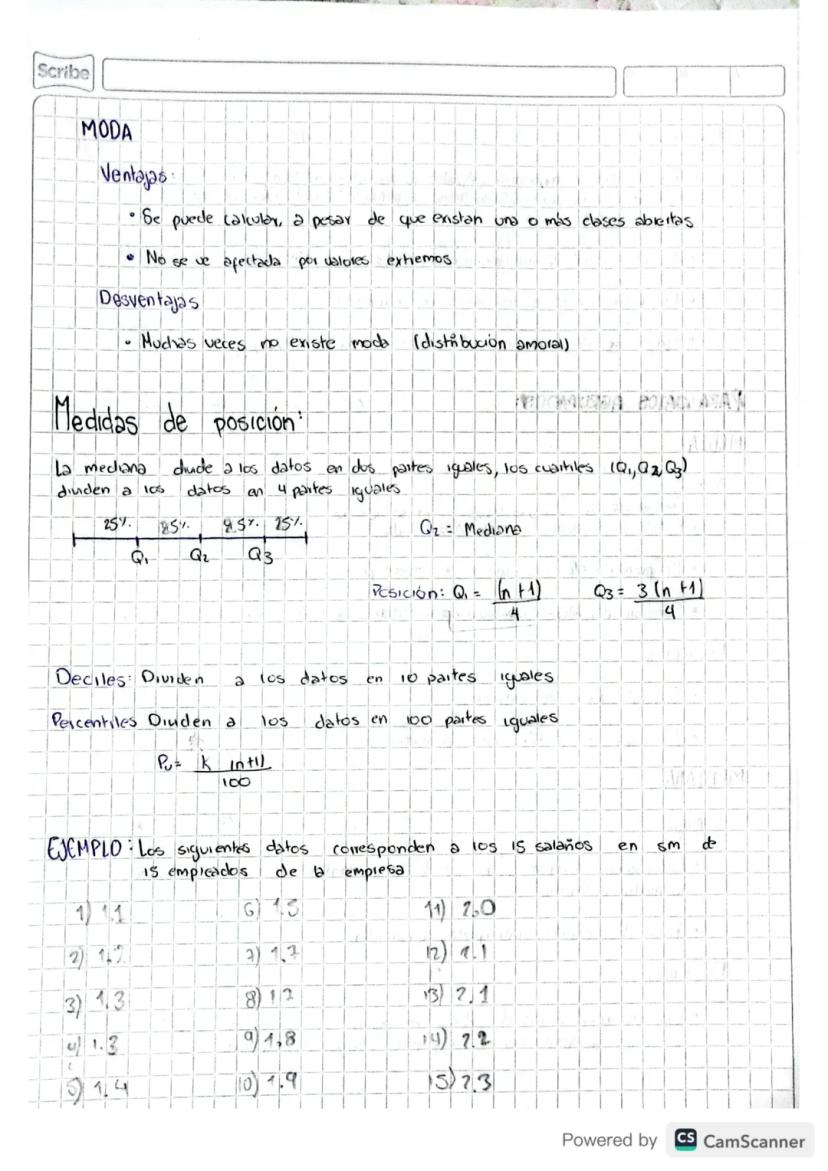 Scribe
MODA
Ventajas:
• Se puede calcular, a pesar de que existan una o más clases abiertas
• No se ve afectada por valores extremos
Desventajas
• Muchas veces no existe moda (distribución amodal)
Medidas de posición:
La mediana divide a los datos en dos partes iguales, los cuartiles (Q1, Q2, Q3)
dividen a los datos en 4 partes iguales
25%. 25%. 25%. 25%.
Q1 Q2 Q3
Q2 = Mediana
Posición: Q1 = (n+1)/4 Q3 = 3(n+1)/4
Deciles: Dividen a los datos en 10 partes iguales
Percentiles Dividen a los datos en 100 partes iguales
= k (n+1)/100
EJEMPLO: Los siguientes datos corresponden a los 15 salarios en sm de
15 empleados de la empresa
1) 1.1 6) 1.5 11) 2,0
2) 7) 1,7 12)
3) 1,3 8) 13) 2.1
4) 1.3 9) 1,8 14) 2.2
5) 1,4 10) 1.9 15) 2.3
Powered by CS CamScanner